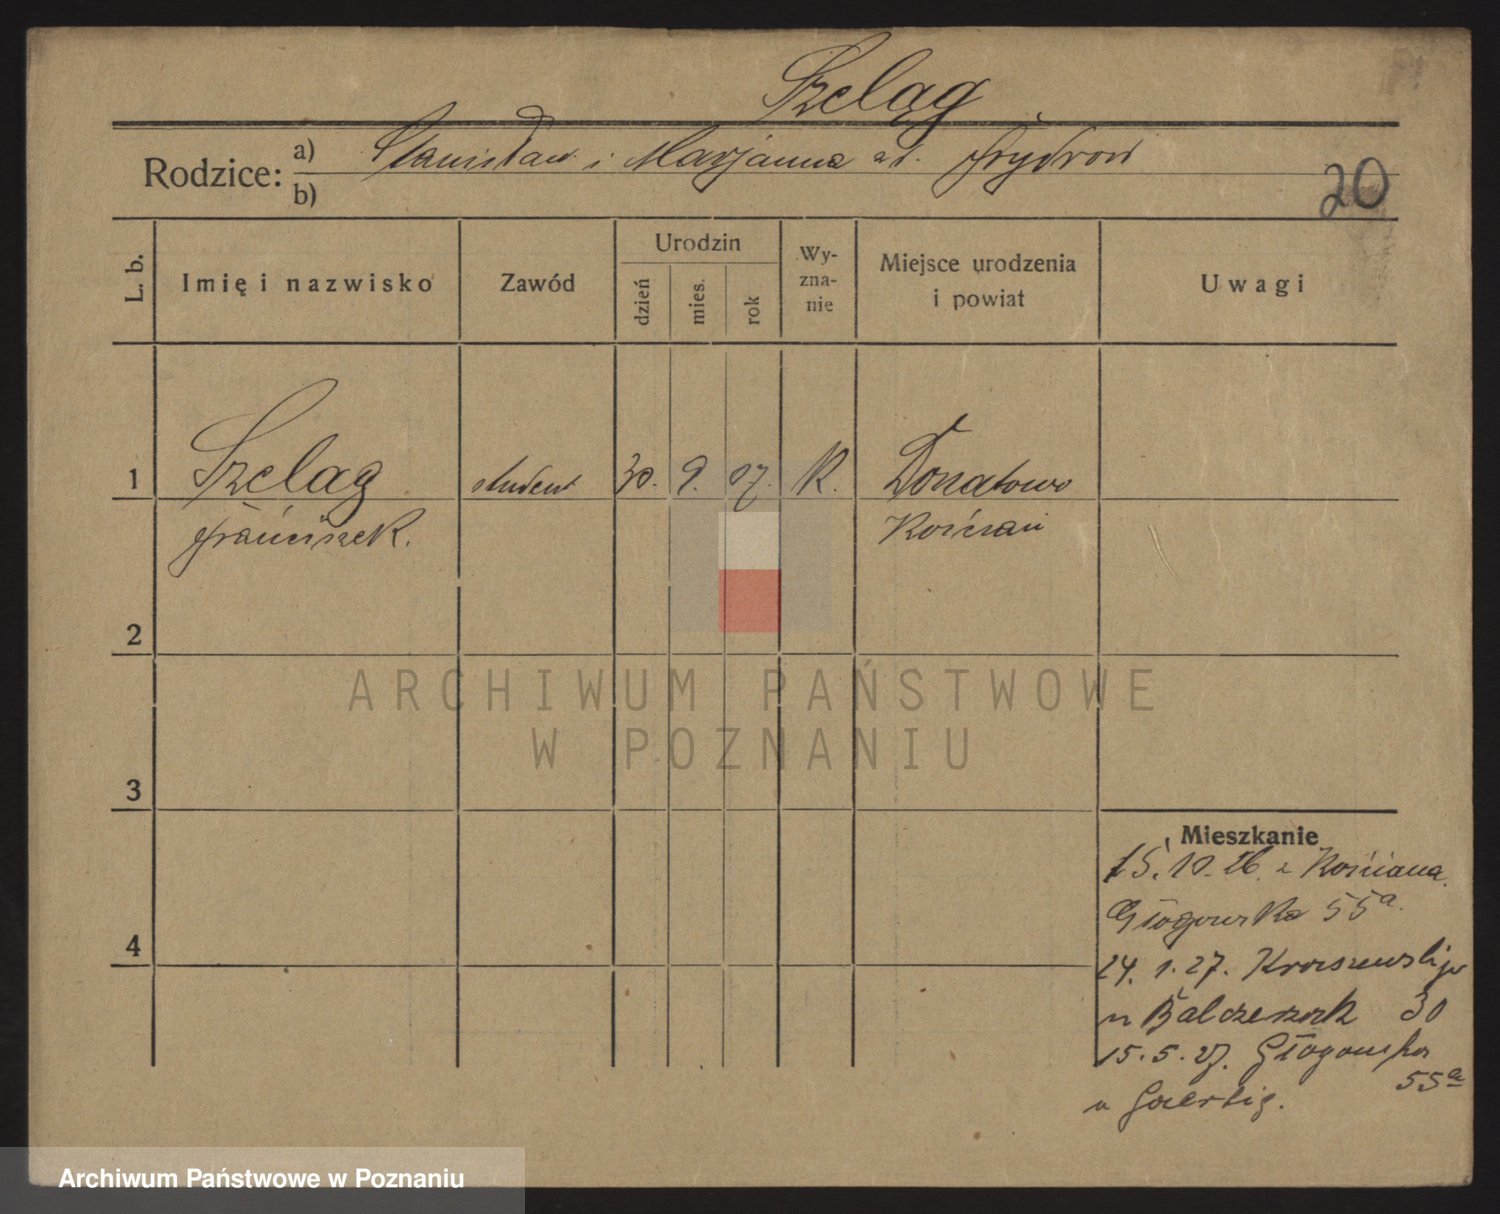 Szeląg
Rodzice:
a) Stanisław i Marjanna
b)
20
L. b.
Imię i nazwisko
Zawód
Urodzin
dzień
mies.
rok
Wy-
zna-
nie
Miejsce urodzenia
i powiat
Uwagi
1 Szelag student 30. 9. 07. K. Donatowo
Franciszek. Kościan
2
ARCHIWUM PAŃSTWOWE
W POZNANIU
3
Mieszkanie
15. 10. 26. z Kościana.
Głogowska 55a.
4
24. 1. 27. Kraszewskiego
u 30
15. 5. 27. Głogowska
55a
u
Archiwum Państwowe w Poznaniu